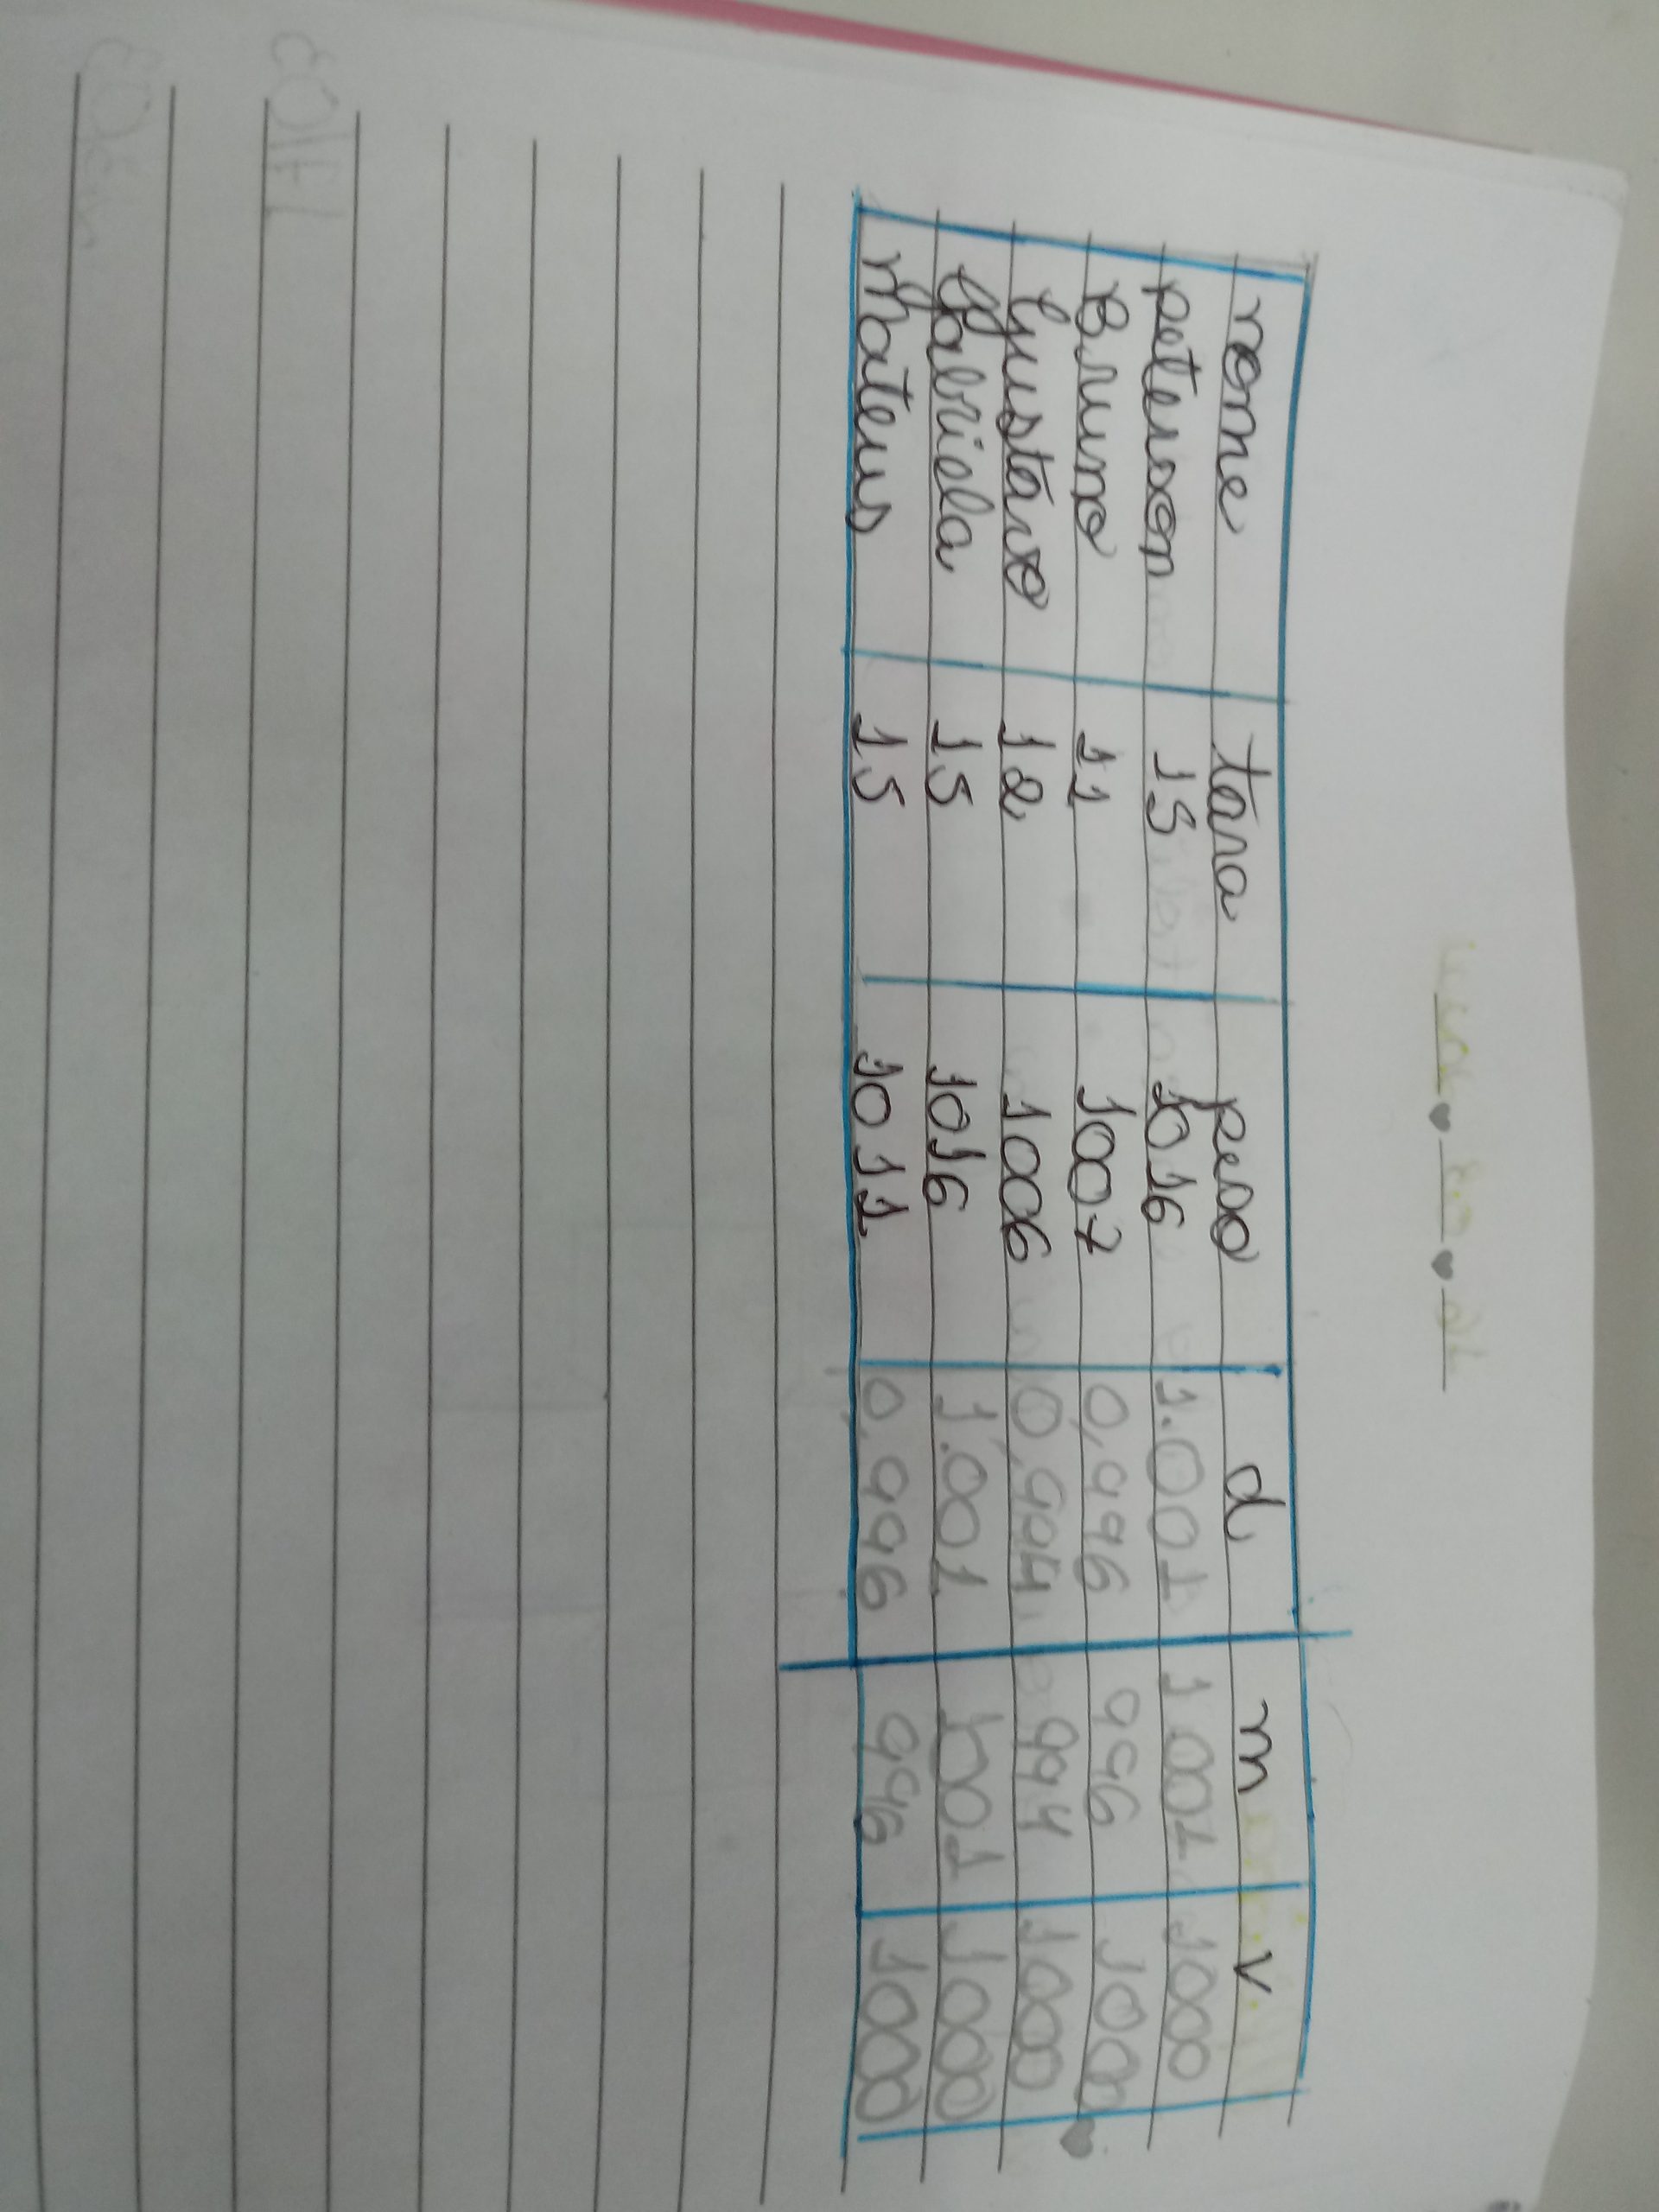 nome tara peso d m v
peterson 15 1016 1.001 1001 1000
Bruno 11 1007 0,996 996 1000
Gustavo 12 1006 0,994 994 1000
Gabriela 15 1016 1.001 1001 1000
Mateus 15 1011 0,996 996 1000